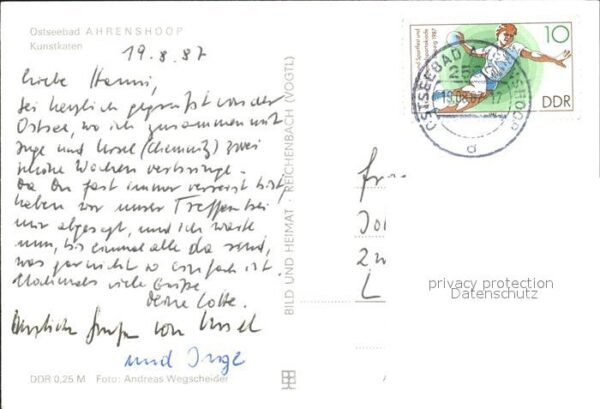 Ostseebad AHRENSHOOP
Kunstkaten
19.8.87
Liebe Hanni,
sei herzlich gegrüßt von der
Ostsee, wo ich zusammen mit
Inge und Ursel (Chemnitz) zwei
schöne Wochen verbringe.
Da Du fast immer verreist bist,
haben wir unser Treffen bei
mir abgesagt, und ich warte
nun, bis einmal alle da sind,
was gar nicht so einfach ist.
Nochmals viele Grüße,
Deine Lotte.
Herzliche Grüße von Ursel
und Inge
DDR 0,25 M Foto: Andreas Wegscheider
BILD UND HEIMAT · REICHENBACH (VOGTL)
10
DDR
1987
OSTSEEBAD AHRENSHOOP
25
19.08.87-17
a
privacy protection
Datenschutz